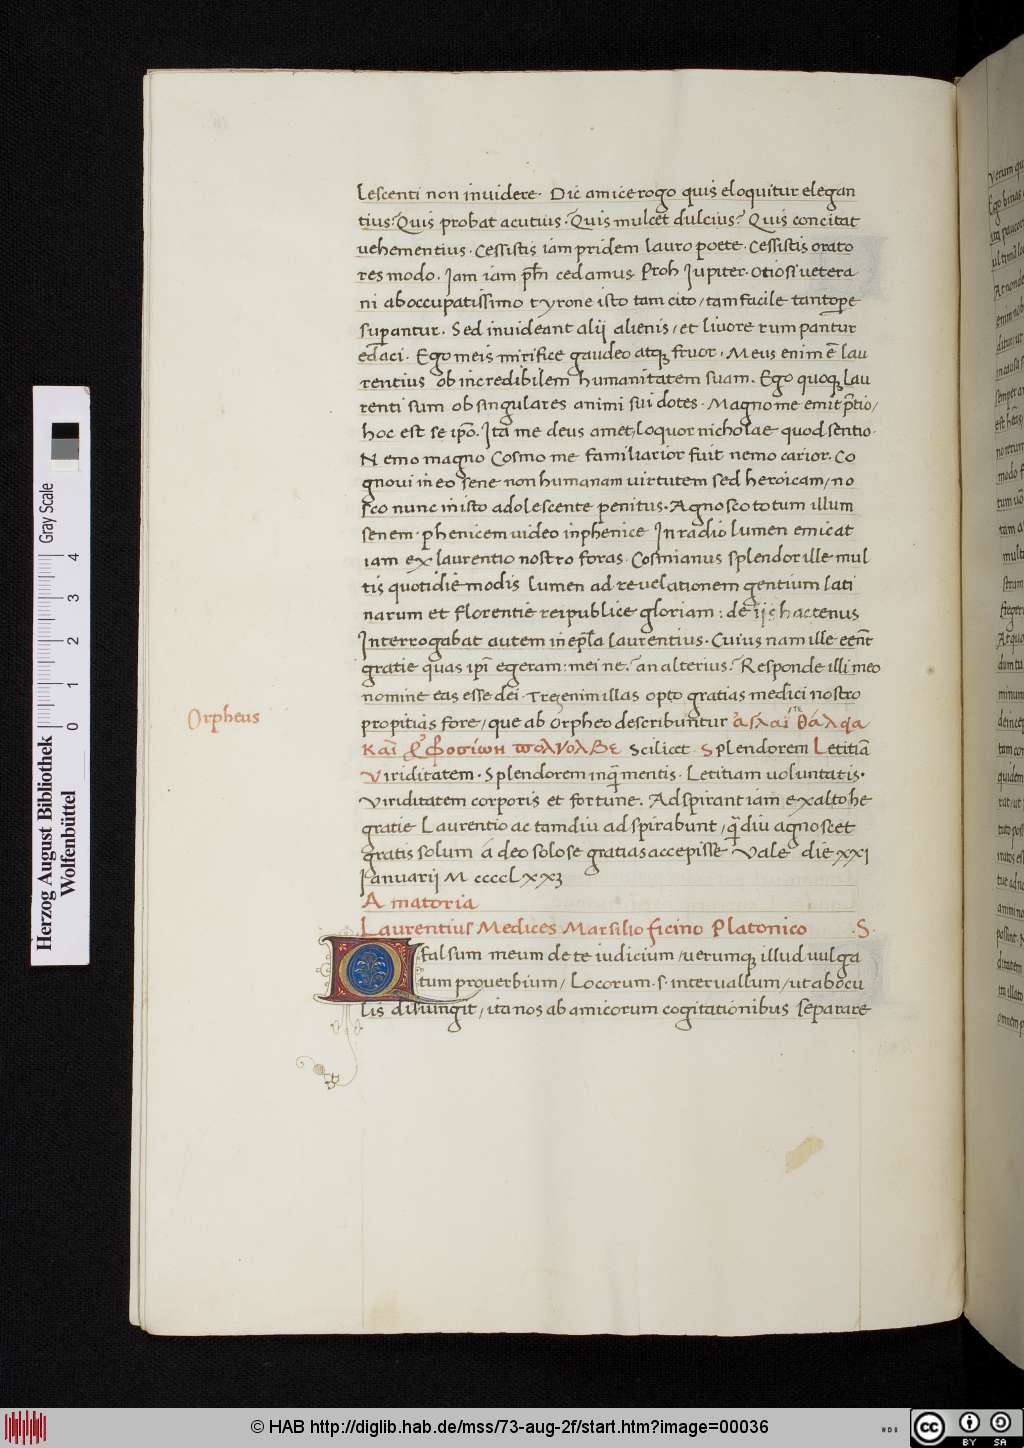 lescenti non invidere. Dic amice rogo quis eloquitur elegan
tius? Quis probat acutius? Quis mulcet dulcius? Quis concitat
vehementius. Cessistis iam pridem lauro poete. Cessistis orato
res modo. Iam iam ph̄i cedamus. Proh Iupiter. otiosi vetera
ni ab occupatissimo tyrone isto tam cito/ tam facile tantope
superantur. Sed invideant alij alienis/ et livore rumpantur
edaci. Ego meis mirifice gaudeo atq; fruor. Meus enim ē lau
rentius ob incredibilem humanitatem suam. Ego quoq; Lau
renti sum ob singulares animi sui dotes. Magno me emit p̄tio/
hoc est se ip̄o. Ita me deus amet/ loquor nicholae quod sentio.
Nemo magno Cosmo me familiarior fuit nemo carior. Co
gnovi in eo sene non humanam uirtutem sed heroicam/ no
sco nunc in isto adolescente penitus. Agnosco totum illum
senem. phenicem uideo in phenice In radio lumen emicat
iam ex laurentio nostro foras. Cosmianus splendor ille mul
tis quotidie modis lumen ad revelationem gentium lati
narum et florentie reipublice gloriam: de iis hactenus
Interrogabat autem in ep̄la laurentius. Cuius nam ille eēnt
gratie quas ip̄i egeram: mei ne? an alterius? Responde illi meo
nomine eas esse dei. Tres enim illas opto gratias medici nostro
Orpheus
propitias fore/ que ab Orpheo describuntur ἀγλαΐτε θάλφα
καὶ εὐφροσίωη πολγολβε Scilicet. Splendorem Letitiā
Viriditatem. Splendorem inquā mentis. Letitiam uoluntatis.
Viriditatem corporis et fortune. Adspirant iam ex alto he
gratie Laurentio ac tamdiu adspirabunt/ quādiu agnoscet
gratis solum a deo solo se gratias accepisse Vale die xxi
Ianuarii M ccccLxx3
Amatoria
Laurentius Medices Marsilio ficino Platonico .S.
Etalsum meum de te iudicium/ uerumq; illud uulga
tum prouerbium/ Locorum .s. interuallum/ ut ab ocu
lis disiungit/ ita nos ab amicorum cogitationibus separare
Herzog August Bibliothek
Wolfenbüttel
Gray Scale
0 1 2 3 4
© HAB http://diglib.hab.de/mss/73-aug-2f/start.htm?image=00036
cc BY SA